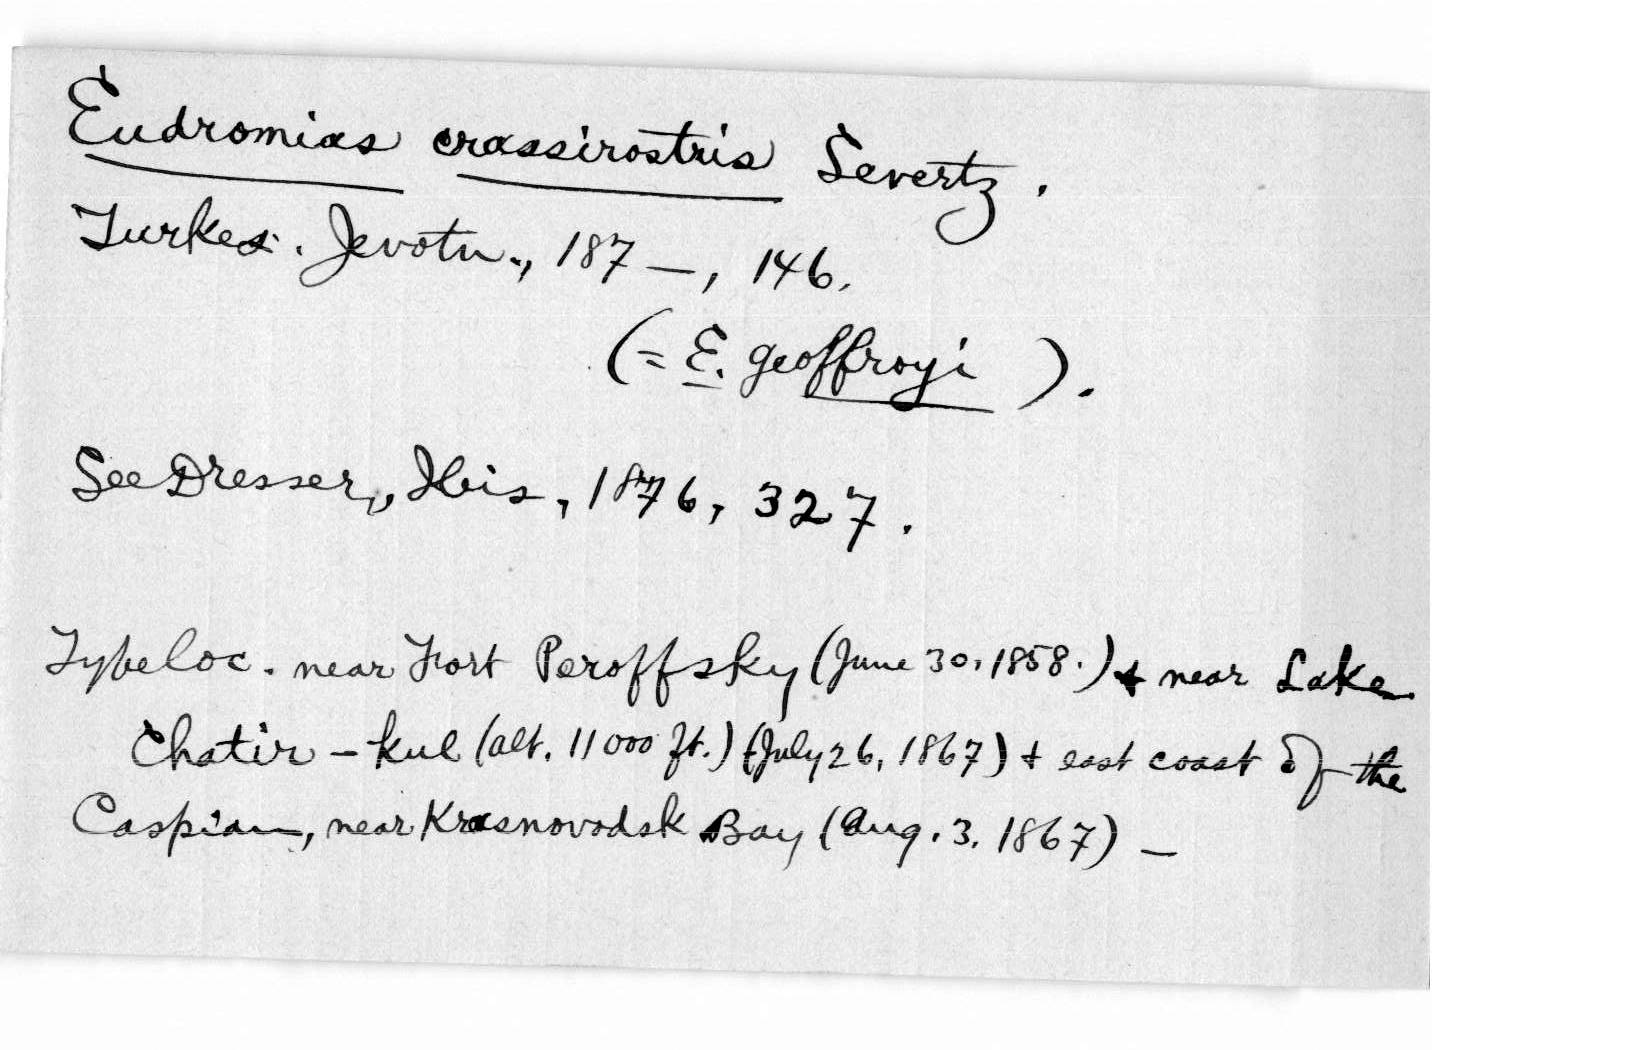 Eudromias crassirostris Severtz.
Turkes. Jevotn., 187–, 146.
(= E. geoffroyi ).
See Dresser, Ibis, 1876, 327.
Type loc. near Fort Peroffsky (June 30, 1858.) + near Lake
Chatir – kul (alt. 11000 ft.) (July 26, 1867) + east coast of the
Caspian, near Krasnovodsk Bay (Aug. 3. 1867) –